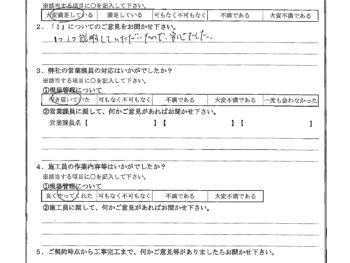 ※該当する項目に○を記入して下さい。
大変満足している 満足している 可もなく不可もなく 不満である 大変不満である
2．「1」についてのご意見をお聞かせ下さい。
説明していただいたので、
3．弊社の営業課員の対応はいかがでしたか？
※該当する項目に○を記入して下さい。
①現場管理について
行き届いていた 可もなく不可もなく 不満である 大変不満である 一度も会わなかった
②営業課員に関して、何かご意見があればお聞かせ下さい。
営業課員名【 】【 】
4．施工員の作業内容等はいかがでしたか？
※該当する項目に○を記入して下さい。
①現場管理について
良くやってくれた 可もなく不可もなく 不満である 大変不満である
②施工員に関して、何かご意見があればお聞かせ下さい。
5．ご契約時点から工事完工まで、何かご意見等がありましたらお聞かせ下さい。